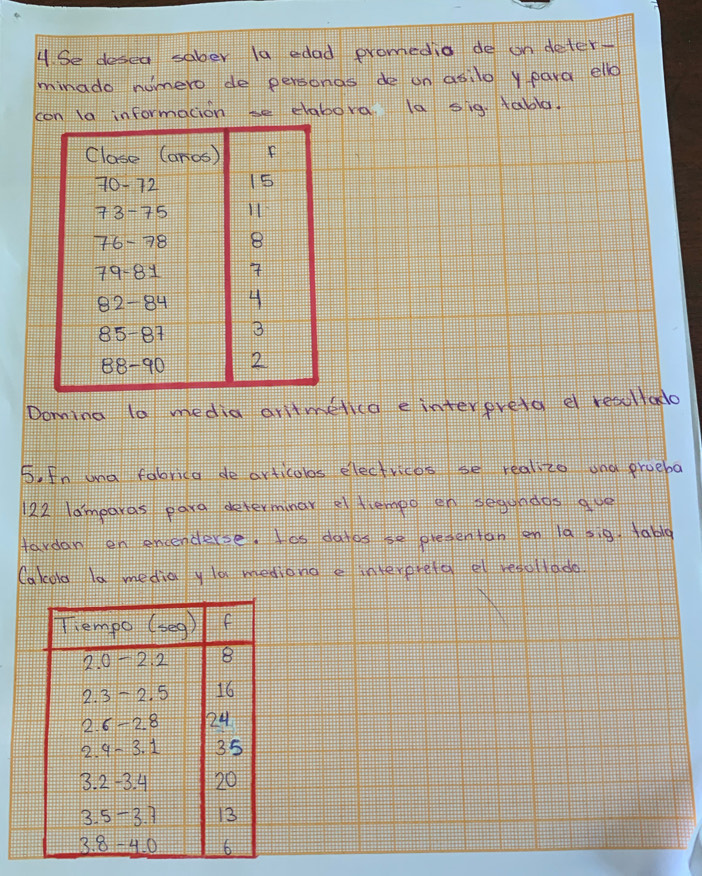 4. Se desea saber la edad promedio de un deter-
minado número de personas de un asilo y para ello
con la información se elabora la sig. tabla.
Clase (años) F
70-72 15
73-75 11
76-78 8
79-81 7
82-84 4
85-87 3
88-90 2
Domina la media aritmética e interpreta el resultado
5. En una fabrica de articulos eléctricos se realizo una prueba
122 lámparas para determinar el tiempo en segundos que
tardan en encenderse. Los datos se presentan en la sig. tabla
Calcula la media y la mediana e interpreta el resultado.
Tiempo (seg) f
2.0-2.2 8
2.3-2.5 16
2.6-2.8 24
2.9-3.1 35
3.2-3.4 20
3.5-3.7 13
3.8-4.0 6